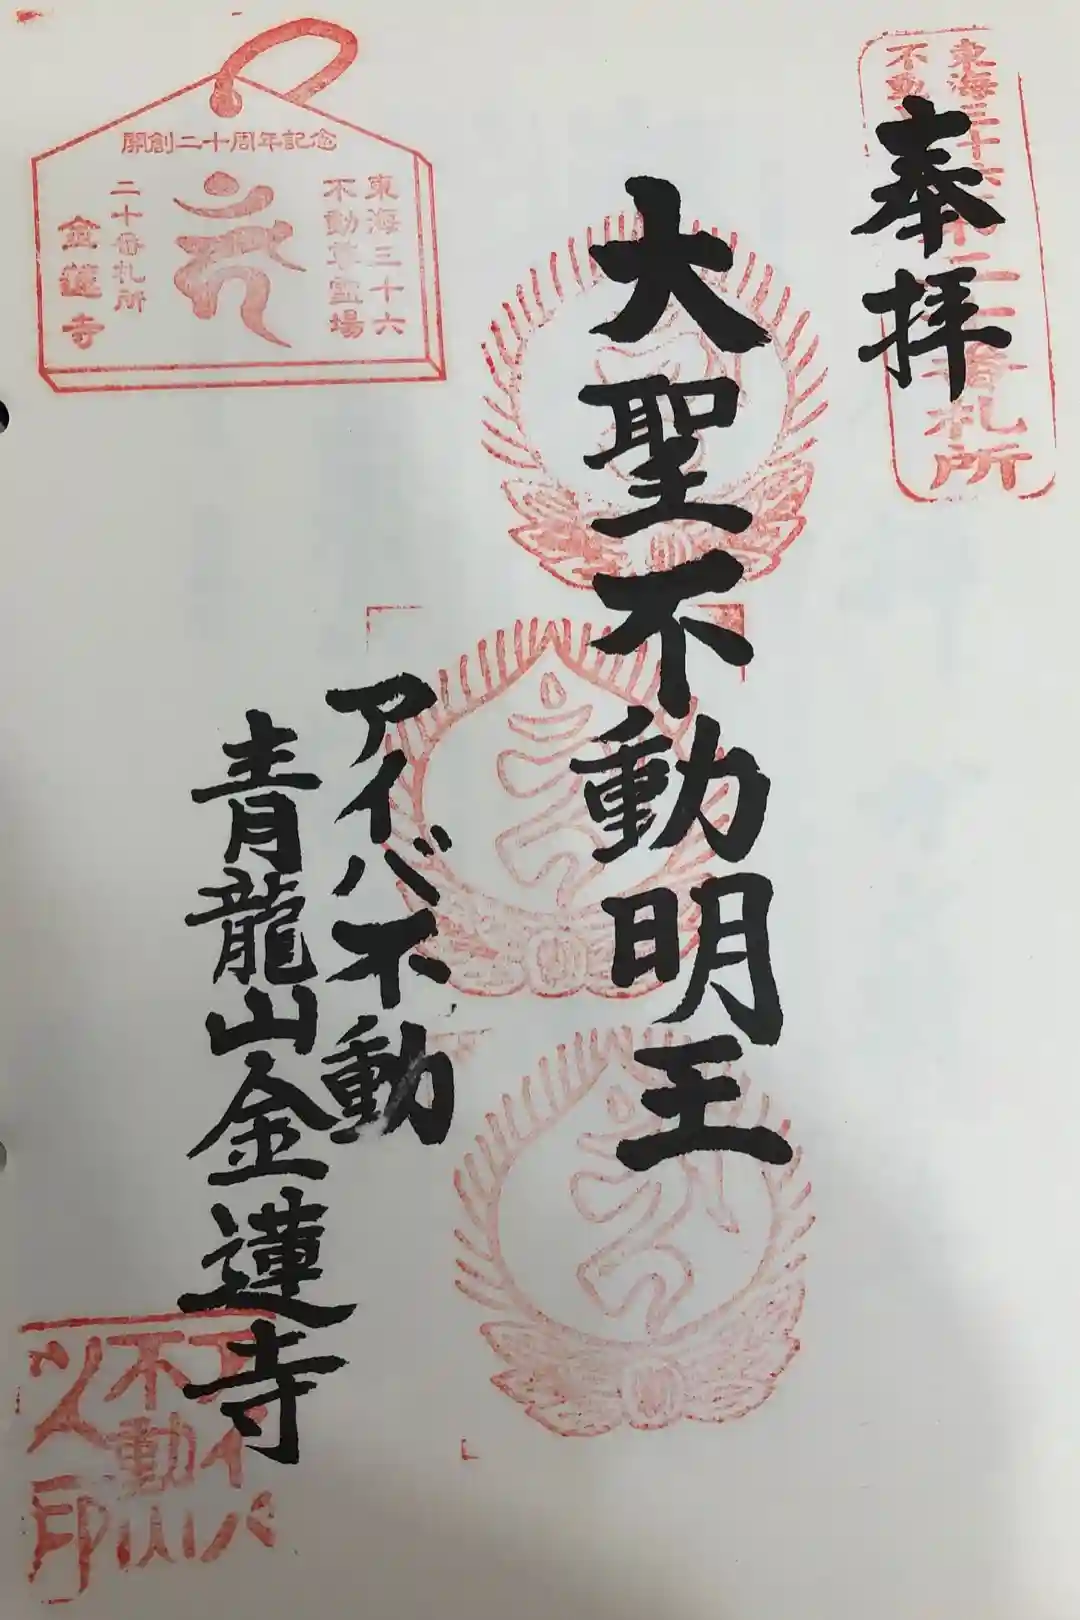 奉拝
東海三十六
不動
札所
大聖不動明王
アイバ不動
青龍山金蓮寺
開創二十周年記念
東海三十六
不動尊霊場
二十番札所
金蓮寺
不動
印